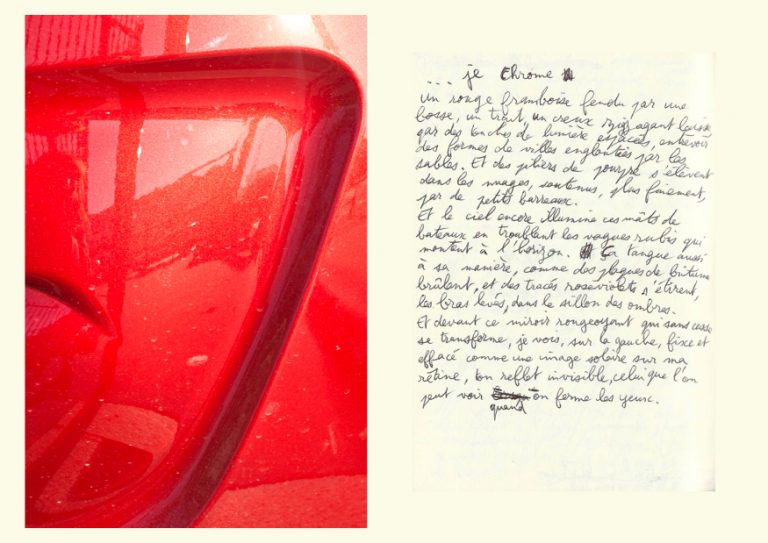 ... je chrome
un rouge framboise fendu par une
bosse, un trait, un creux zigzagant laisse
par des touches de lumière espacées, entrevoir
des formes de villes englouties par les
sables. Et des piliers de pourpre s'élèvent
dans les nuages, soutenus, plus finement,
par de petits barreaux.
Et le ciel encore illumine ces mâts de
bateaux en troublant les vagues rubis qui
montent à l'horizon. Ça tangue aussi
à sa manière, comme des plaques de bitume
brûlant, et des tracés roseviolets s'étirent,
les bras levés, dans le sillon des ombres.
Et devant ce miroir rougeoyant qui sans cesse
se transforme, je vois, sur la gauche, fixe et
effacé comme une image solaire sur ma
rétine, ton reflet invisible, celui que l'on
peut voir quand on ferme les yeux.